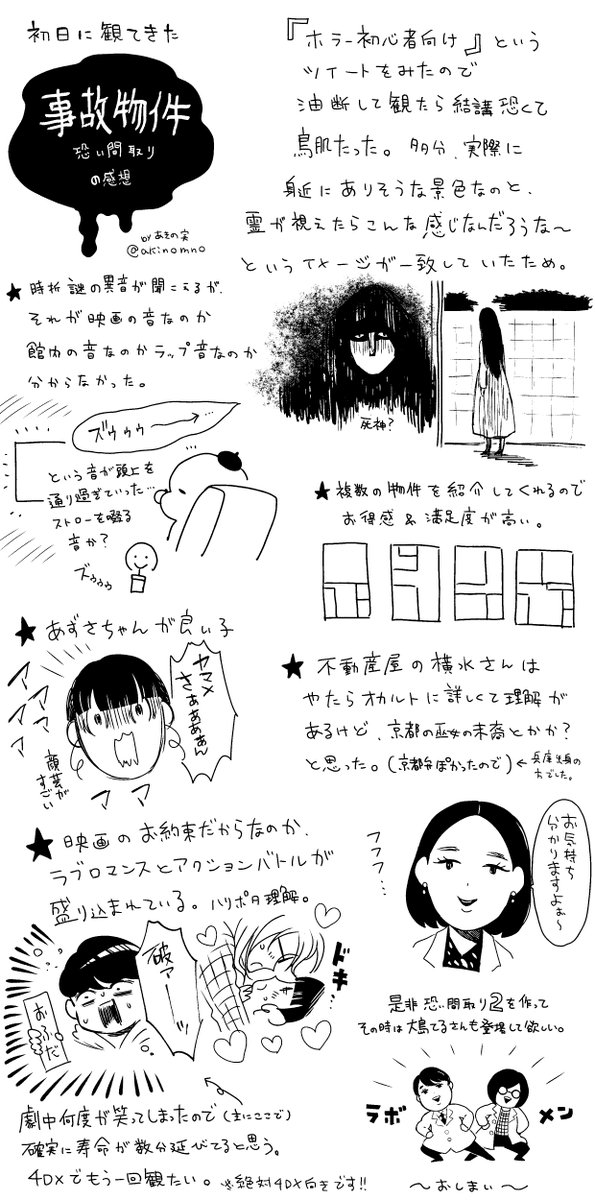 初日に観てきた
事故物件
恐い間取り
の感想
by あきの実
@akinomno
『ホラー初心者向け』という
ツイートをみたので
油断して観たら結講恐くて
鳥肌たった。多分、実際に
身近にありそうな景色なのと、
霊が視えたらこんな感じなんだろうな〜
というイメージが一致していたため。
死神?
★時折謎の異音が聞こえるが、
それが映画の音なのか
館内の音なのかラップ音なのか
分からなかった。
ズゥゥゥ
という音が頭上を
通り過ぎていった…
ストローを啜る
音か?
ズゥゥゥ
★複数の物件を紹介してくれるので
お得感&満足度が高い。
★あずさちゃんが良い子
ヤマメ
さぁぁぁぁん
アアアア
顔芸が
すごい
アア
★不動産屋の横水さんは
やたらオカルトに詳しくて理解が
あるけど、京都の巫女の末裔とかか?
と思った。(京都弁ぽかったので)←兵庫出身の
方でした。
お気持ち
分かりますよぉ〜
フフフ…
★映画のお約束だからなのか、
ラブロマンスとアクションバトルが
盛り込まれている。ハリポタ理解。
破ァーー!!
おふだ
ドキ
劇中何度が笑ってしまったので(主にここで)
確実に寿命が数分延びてると思う。
4DXでもう一回観たい。※絶対4DX向きです!!
是非恐い間取り2を作って
その時は大島てるさんも登場して欲しい。
ラボ
メン
〜おしまい〜